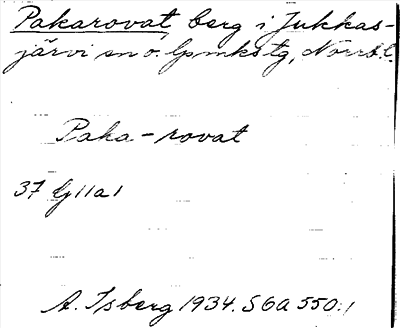 Pakarovat, berg i Jukkas-
järvi sn o. lpmkstg, Norrb. l.
Paka-rovat
37 Gj 11 a 1
A. Isberg 1934. S 6 A 550:1